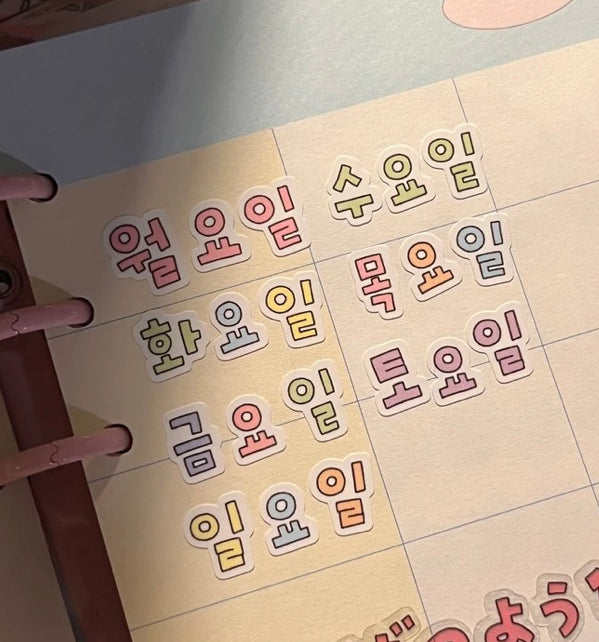 월요일 수요일
화요일 목요일
금요일 토요일
일요일